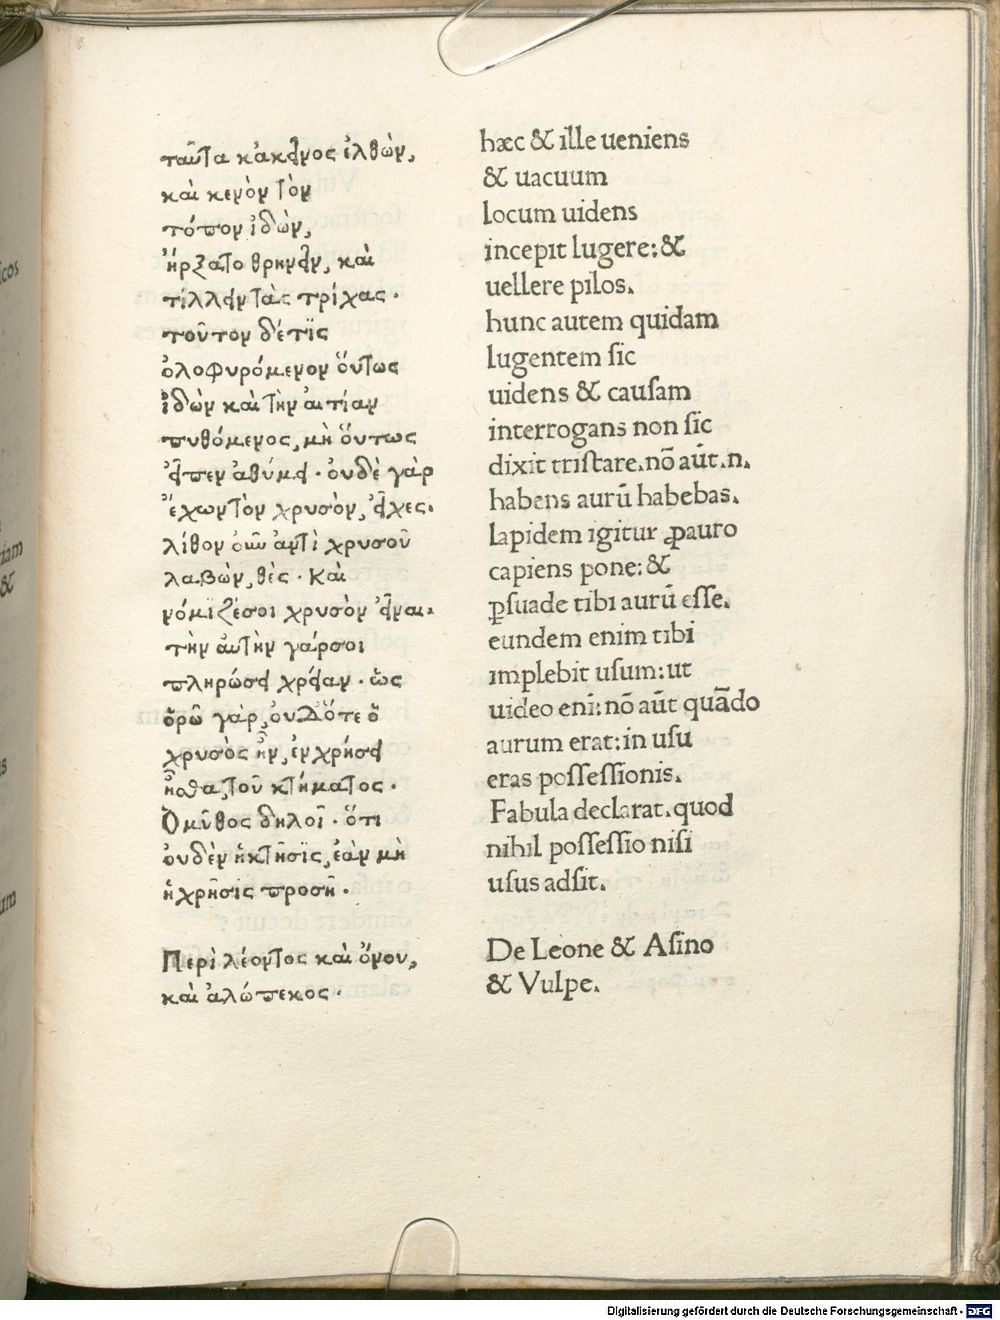 ταῦτα κἀκεῖνος ἐλθὼν,
καὶ κενὸν τὸν
τόπον ἰδὼν,
ἤρξατο θρηνεῖν, καὶ
τίλλειν τὰς τρίχας.
τοῦτον δέ τις
ὀλοφυρόμενον οὕτως
ἰδὼν καὶ τὴν αἰτίαν
πυθόμενος, μὴ οὕτως
εἶπεν ἀθύμει. οὐδὲ γὰρ
ἔχων τὸν χρυσὸν, εἶχες.
λίθον οὖν ἀντὶ χρυσοῦ
λαβὼν, θὲς. καὶ
νόμιζέ σοι χρυσὸν εἶναι.
τὴν αὐτὴν γάρ σοι
πληρώσει χρείαν. ὡς
ὁρῶ γὰρ, οὐδ' ὅτε ὁ
χρυσὸς ἦν, ἐν χρήσει
ἦσθα τοῦ κτήματος.
Ὁ μῦθος δηλοῖ. ὅτι
οὐδὲν ἡ κτῆσις, ἐὰν μὴ
ἡ χρῆσις προσῇ.
Περὶ λέοντος καὶ ὄνου,
καὶ ἀλώπεκος.
hæc & ille ueniens
& uacuum
locum uidens
incepit lugere: &
uellere pilos.
hunc autem quidam
lugentem ſic
uidens & cauſam
interrogans non ſic
dixit triſtare. nō aūt. n.
habens aurū habebas.
lapidem igitur ꝓ auro
capiens pone: &
ꝑſuade tibi aurū eſſe.
eundem enim tibi
implebit uſum: ut
uideo eni: nō aūt quādo
aurum erat: in uſu
eras poſſeſſionis.
Fabula declarat. quod
nihil poſſeſſio niſi
uſus adſit.
De Leone & Aſino
& Vulpe.
Digitalisierung gefördert durch die Deutsche Forschungsgemeinschaft - DFG